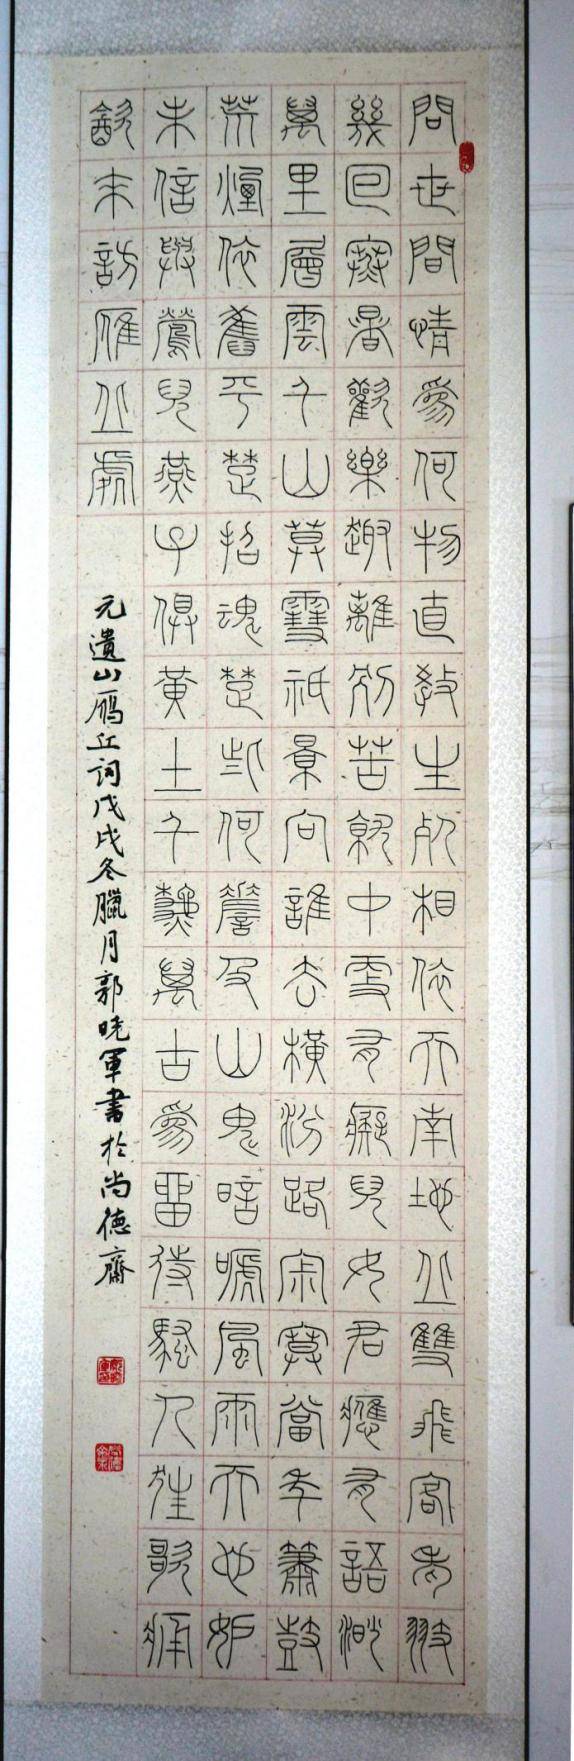 問世間情爲何物直教生死相依天南地北雙飛客老翅
幾回寒暑歡樂趣離別苦就中更有癡兒女君應有語渺
萬里層雲千山莫雪祇景向誰去橫汾路寂寞當年簫鼓
荒煙依舊平楚招魂楚些何嗟及山鬼暗嗁風雨天也妒
未信與鶯兒燕子俱黃土千秋萬古爲留待騷人狂歌痛
飲來訪雁丘處
元遺山鴈丘詞戊戌冬臘月郭晓軍書於尚德齋